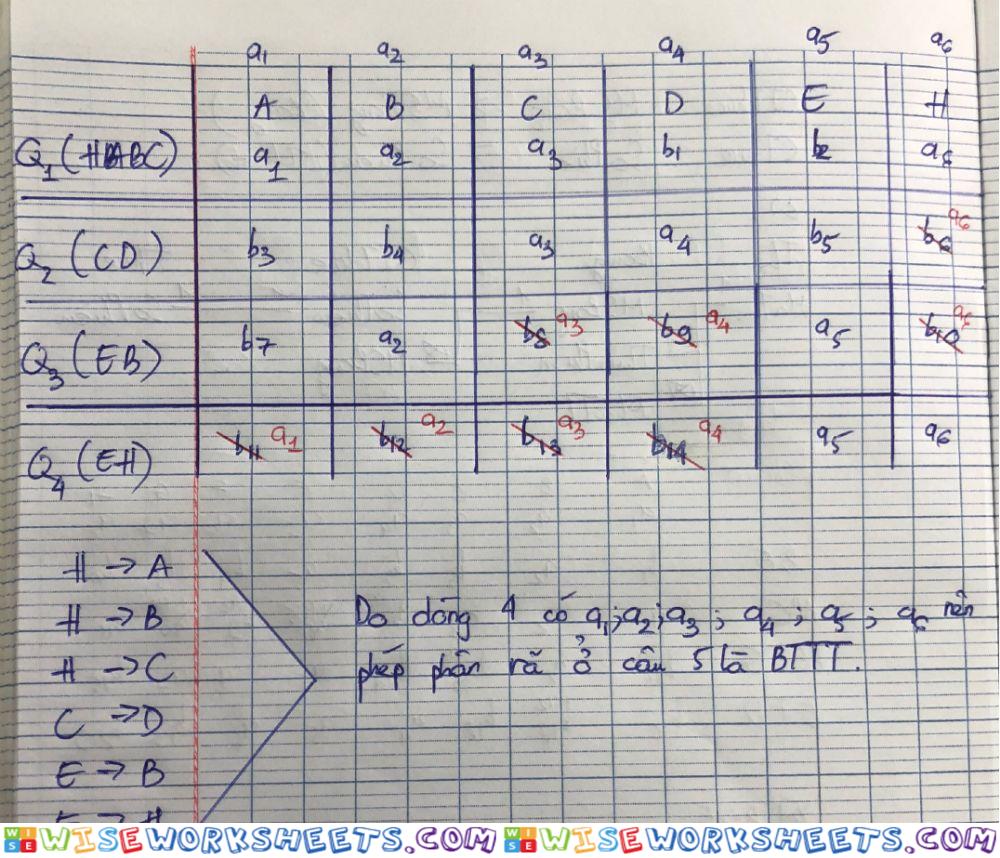 a1 a2 a3 a4 a5 a6
A B C D E H
Q1 (HABC) a1 a2 a3 b1 b2 a6
Q2 (CD) b3 b4 a3 a4 b5 b6 a6
Q3 (EB) b7 a2 b8 a3 b9 a4 a5 b10 a6
Q4 (EH) b11 a1 b12 a2 b13 a3 b14 a4 a5 a6
H → A
H → B
H → C
C → D
E → B
Do dòng 4 có a1; a2; a3; a4; a5; a6 nên
phép phân rã ở câu 5 là BTTT.
WISEWORKSHEETS.COM WISEWORKSHEETS.COM